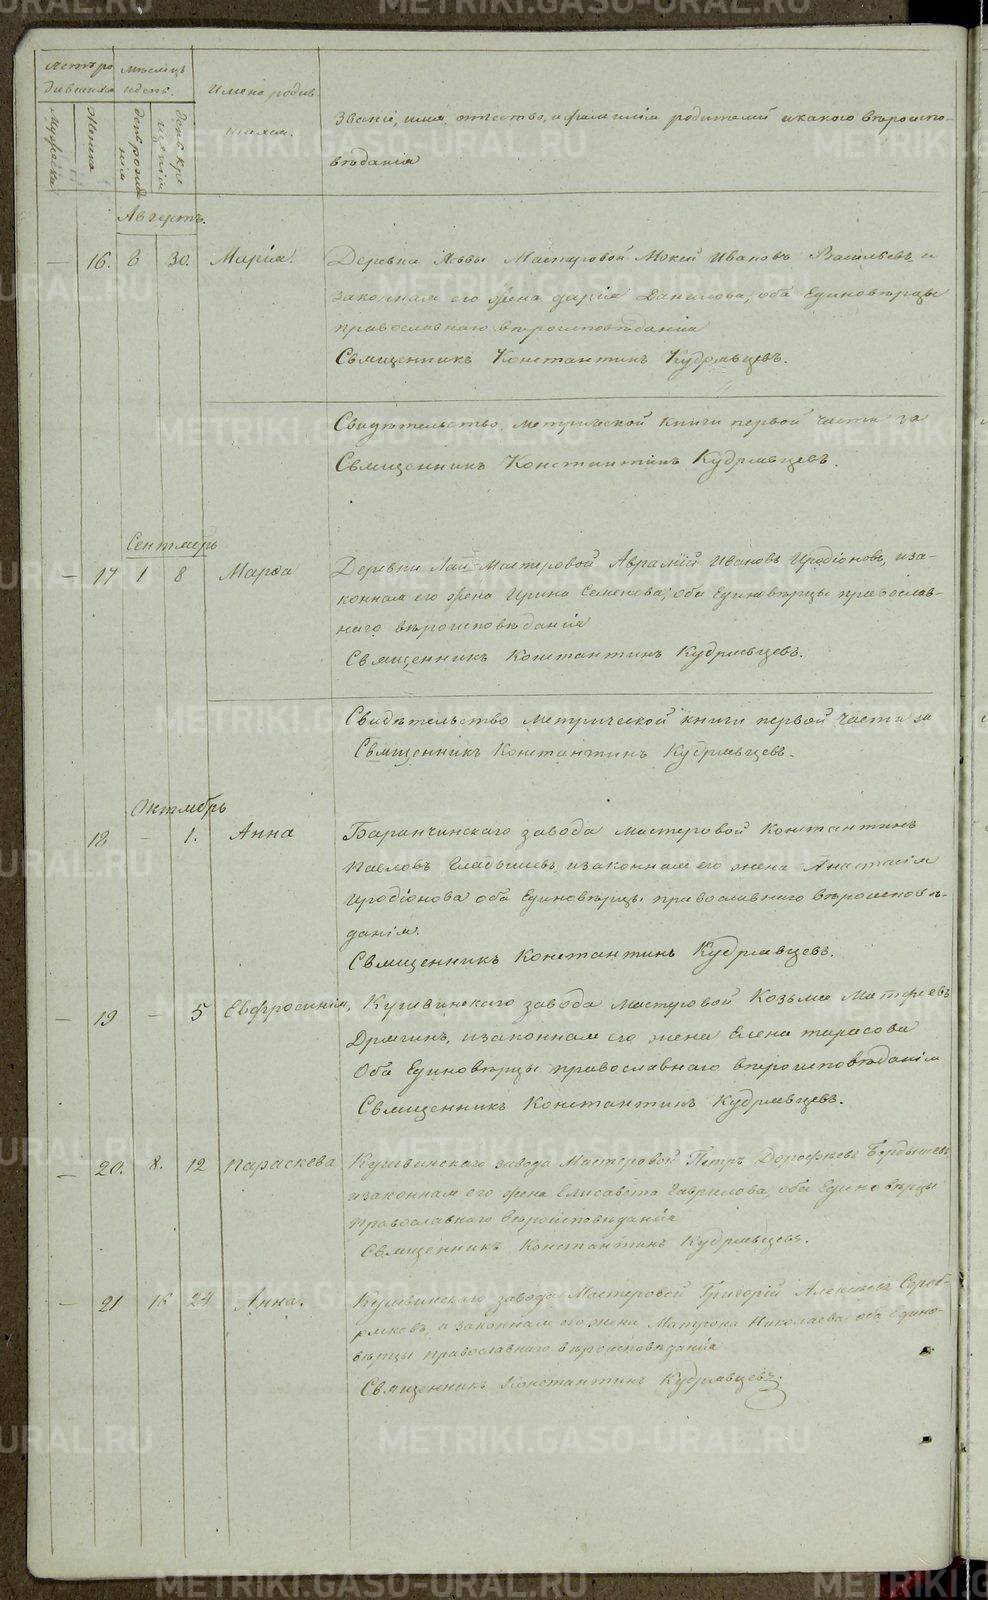 METRIKI.GASO-URAL.RU
Счетъ ро
дившихся
Мѣсяцъ
и день.
Имена родив-
шихся.
Мужеска
Женска
день рожде
нія
день кре
щенія
Званіе, имя, отчество, и фамилія родителей и какого вѣроиспо-
вѣданія
Августъ.
— 16. 6 30. Марія. Деревни Мастеровой Мокей Ивановъ Васильевъ и
законная его жена Дарія Данилова, оба Единовѣрцы
православнаго вѣроисповѣданія
Священникъ Константинъ Кудрявцевъ.
Свидѣтельство метрической книги первой части за
Священникъ Константинъ Кудрявцевъ.
Сентябрь
— 17 1 8 Марѳа Деревни Лаи Мастеровой Аврамій Ивановъ Иродіоновъ, и за-
конная его жена Ирина Семенова, оба Единовѣрцы православ-
наго вѣроисповѣданія
Священникъ Константинъ Кудрявцевъ.
Свидѣтельство метрической книги первой части за
Священникъ Константинъ Кудрявцевъ.
Октябрь
18 — 1. Анна Баранчинскаго завода мастеровой Константинъ
Павловъ Гладышевъ, и законная его жена Анастасія
Иродіонова оба Единовѣрцы православнаго вѣроисповѣ-
данія.
Священникъ Константинъ Кудрявцевъ.
— 19 — 5 Евфросинія, Кушвинскаго завода мастеровой Козьма Матфеевъ
Дрягинъ, и законная его жена Елена Тарасова
Оба Единовѣрцы православнаго вѣроисповѣданія
Священникъ Константинъ Кудрявцевъ.
— 20. 8. 12 Параскева Кушвинскаго завода Мастеровой Петръ Дорофеевъ Бурдышевъ
и законная его жена Елисавета Гаврилова, оба Единовѣрцы
православнаго вѣроисповѣданія
Священникъ Константинъ Кудрявцевъ.
— 21 16 24 Анна. Кушвинскаго завода Мастеровой Григорій Алексѣевъ Сереб-
ряковъ, и законная его жена Матрона Николаева оба едино-
вѣрцы православнаго вѣроисповѣданія
Священникъ Константинъ Кудрявцевъ.